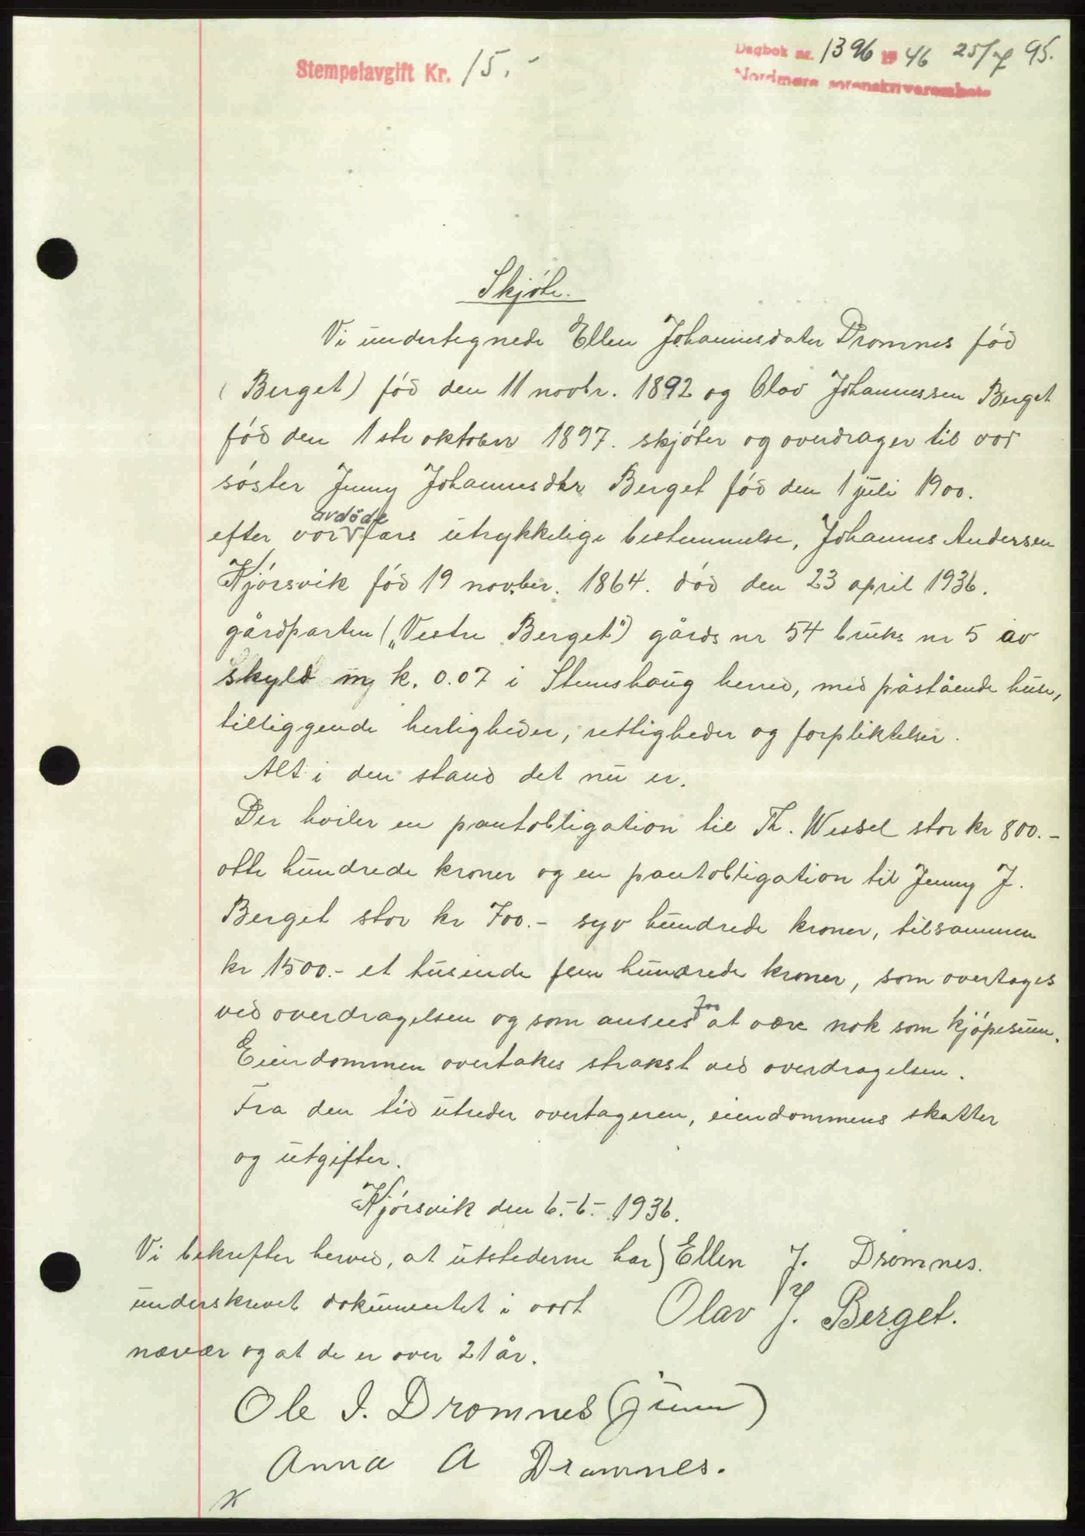 Stempelavgift Kr. 15.-
Dagbok nr. 1396 1946 25/7 95.
Nordmøre sorenskriverembete
Skjøte.
Vi undertegnede Ellen Johannesdater Dromnes fød
(Berget) fød den 11 novbr. 1892 og Olav Johannessen Berget
fød den 1ste oktober 1897. skjøter og overdrager til vor
søster Jenny Johannesdtr Berget fød den 1 juli 1900.
efter vor avdøde fars utrykkelige bestemmelse, Johannes Andersen
Kjørsvik fød 19 novber. 1864. død den 23 april 1936.
gårdparten („Vestre Berget") gårds nr 54 bruks nr 5 av
skyld m k. 0.07 i Stemshaug herred, med påstående huse,
tilliggende herligheder, rettigheder og forpliktelser.
Alt i den stand det nu er.
Der hviler en pantobligation til Th. Wessel stor kr 800.-
otte hundrede kroner og en pantobligation til Jenny J.
Berget stor kr 700.- syv hundrede kroner, tilsammen
kr 1500.- et tusende fem hundrede kroner, som overtages
ved overdragelsen og som ansees for at være nok som kjøpesum.
Eiendommen overtakes strakst ved overdragelsen.
Fra den tid utreder overtageren, eiendommens skatter
og utgifter.
Kjørsvik den 6.-6.- 1936.
Vi bekrefter herved, at utstederne har) Ellen J. Dromnes.
underskrevet dokumentet i vort Olav J. Berget.
nærvær og at de er over 21 år.
Ole I. Dromnes (junr)
Anna A Dromnes.